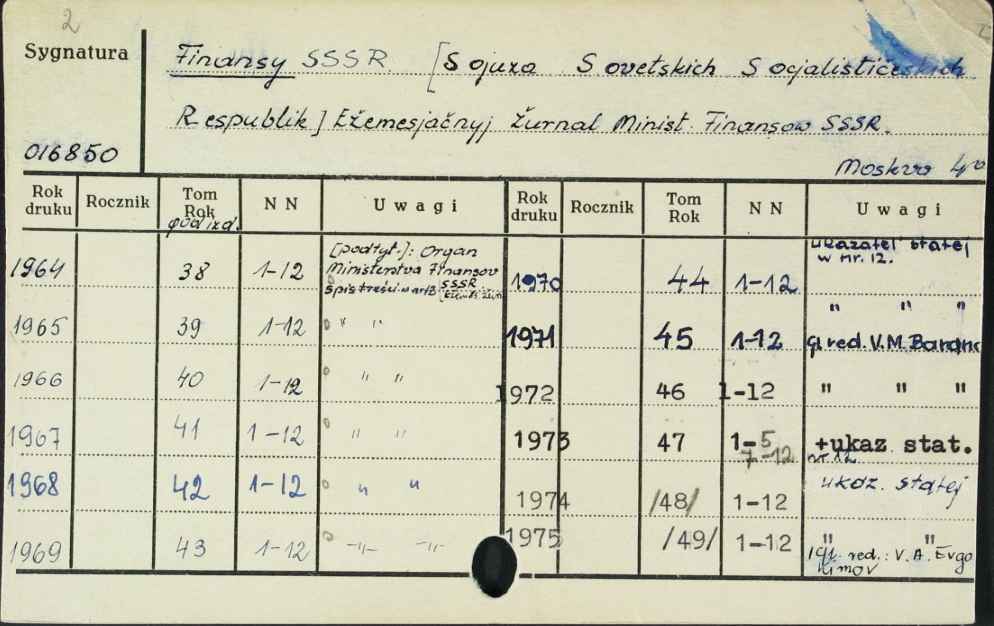 2
Sygnatura
Finansy SSSR. [Sojuza Sovetskich Socjalističeskich
Respublik] Ežemesjačnyj žurnal Minist. Finansow SSSR.
016850
Moskva 4°
Rok druku Rocznik Tom Rok NN Uwagi Rok druku Rocznik Tom Rok NN Uwagi
god izd.
1964 38 1-12 [podtyt.]: Organ
Ministerstva Finansov
SSSR
spis treści w nr 12
1970 44 1-12 ukazatel' statej
w nr. 12.
1965 39 1-12 " " 1971 45 1-12 " " "
gl. red. V.M. Baranc
1966 40 1-12 " " 1972 46 1-12 " " "
1967 41 1-12 " " 1973 47 1-5
7-12 +ukaz stat.
nr. 12
1968 42 1-12 " " 1974 /48/ 1-12 ukaz. statej
1969 43 1-12 -"- -"- 1975 /49/ 1-12 " "
red.: V. A. Evgo
kimov